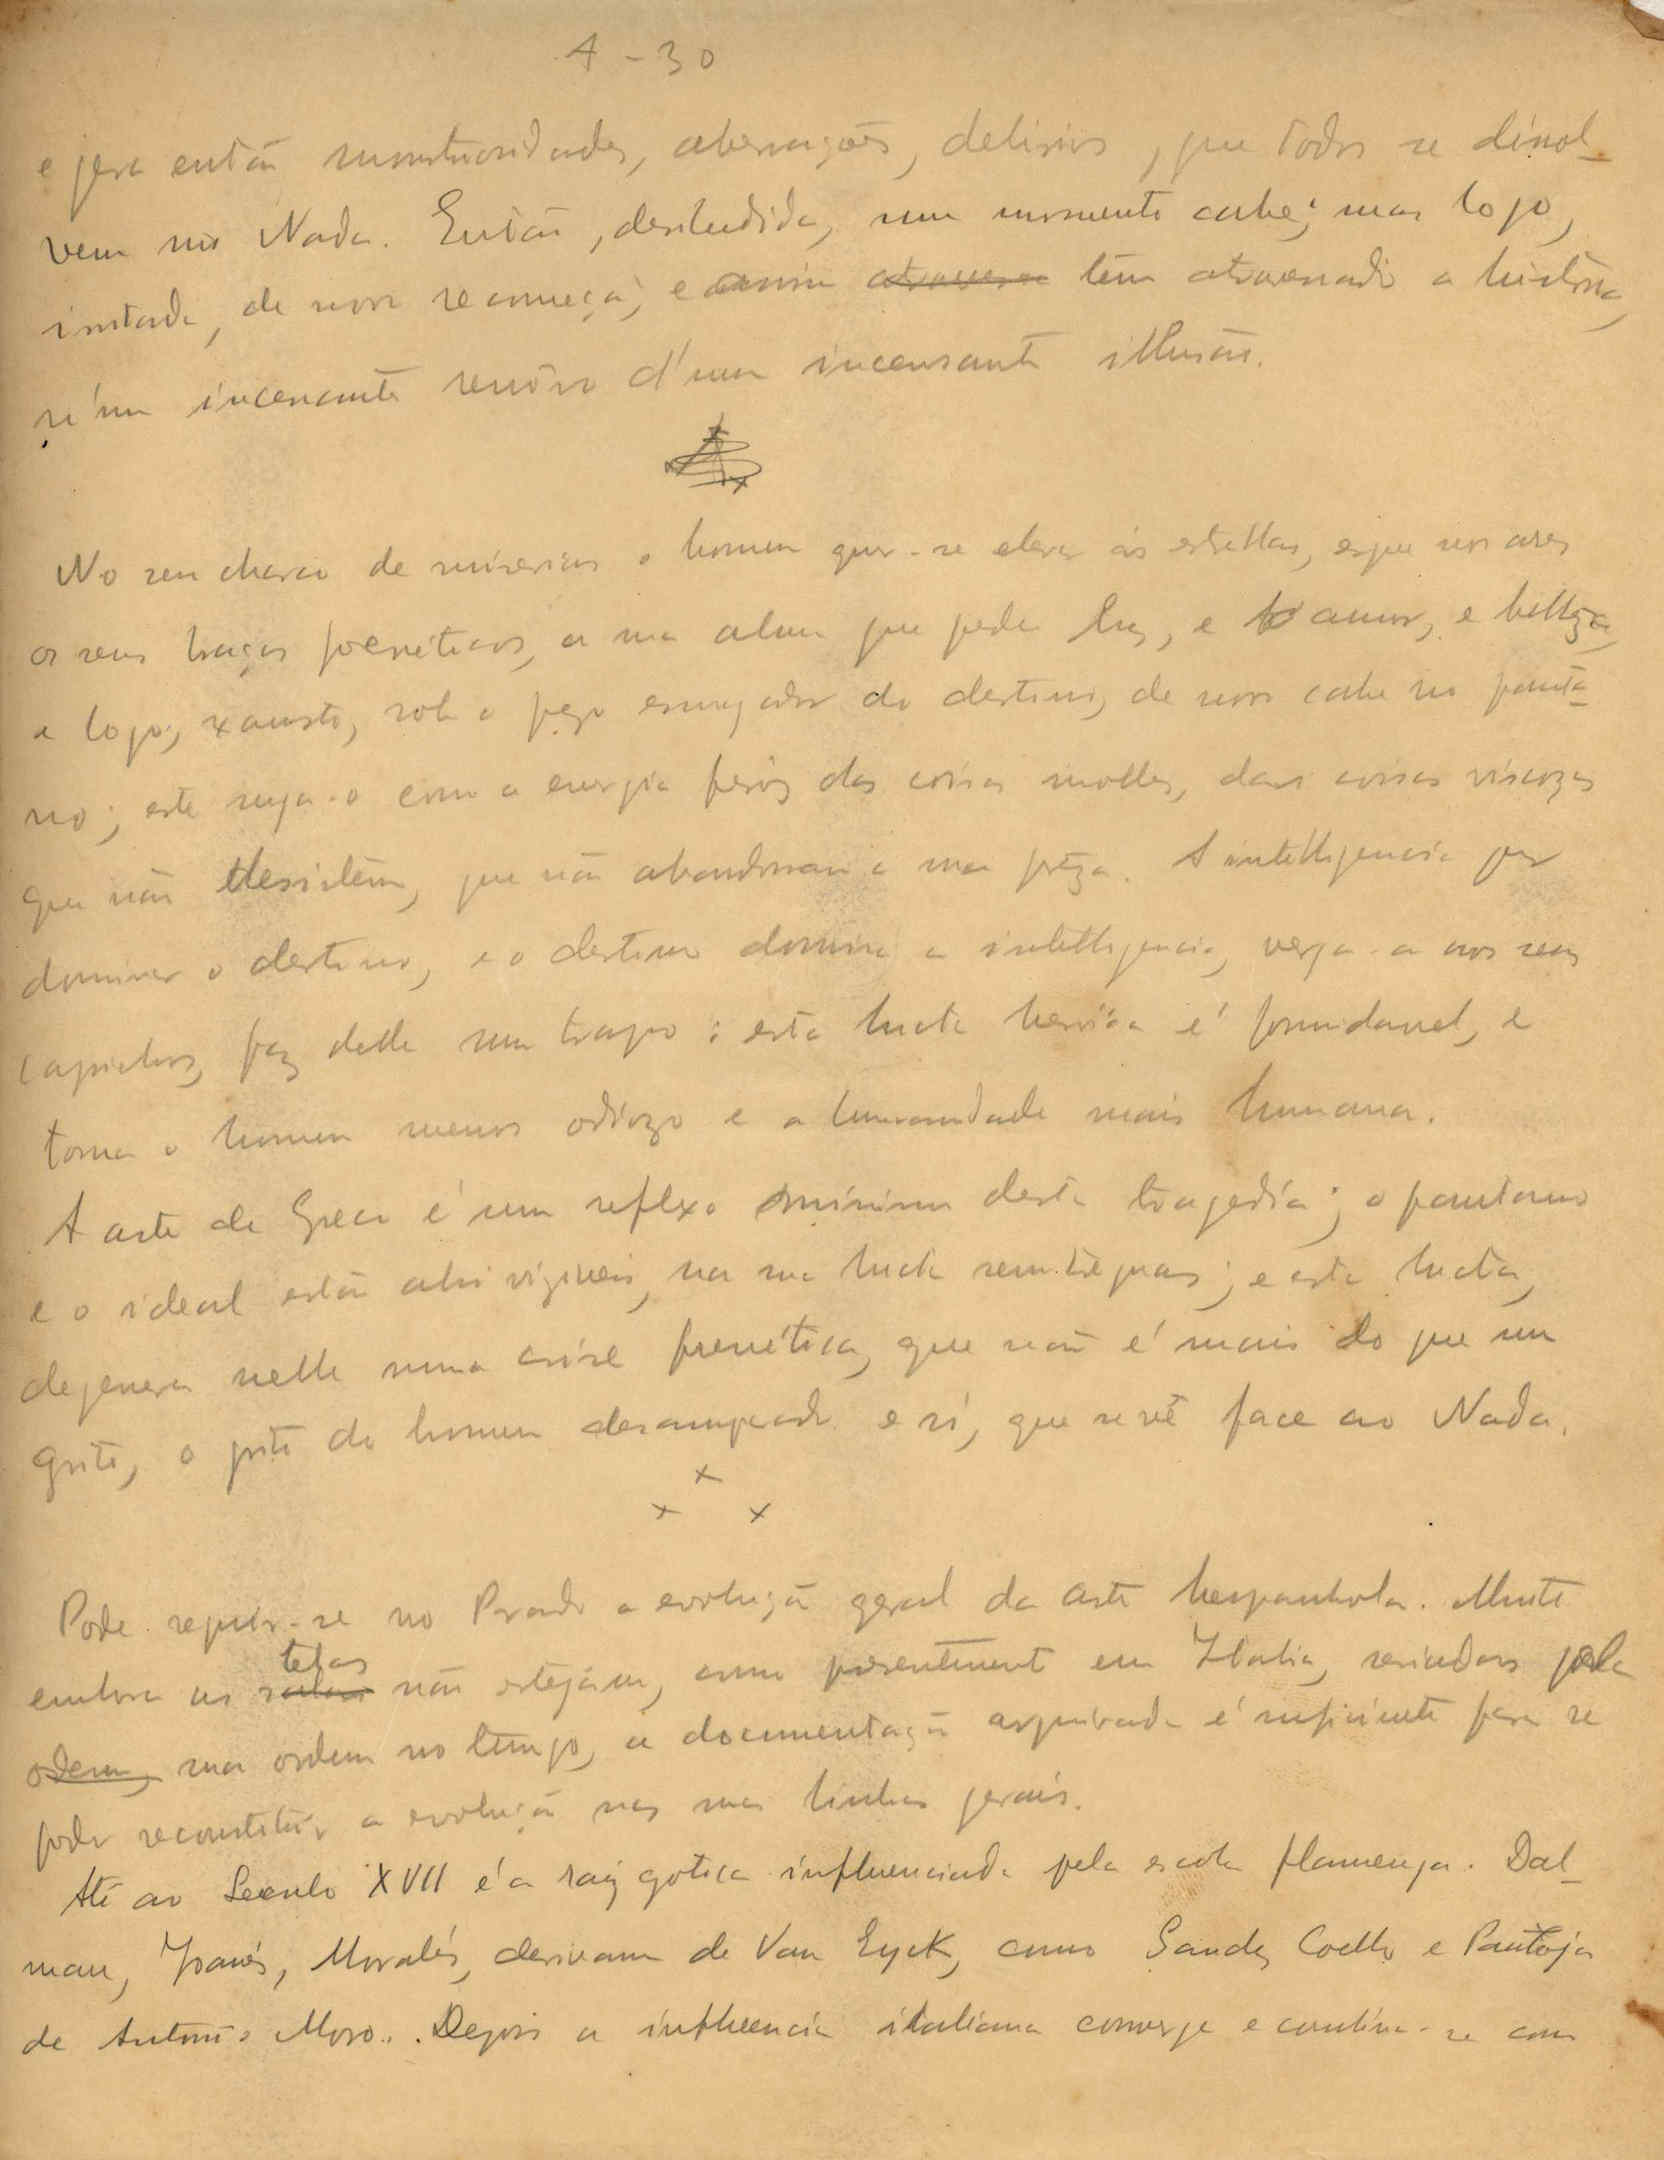 4 - 30
e gera então monstruosidades, aberrações, delirios, que todos se dissol-
vem no Nada. Então, desiludida, um momento cahe; mas logo,
de novo recomeça; e assim têm atravessado a historia,
n'um incessante d'uma incessante illusão.
No seu charco de miserias o homem quer-se elevar ás estrellas, ergue nos ares
os seus braços freneticos, a sua alma que pede luz, e amor, e belleza,
e logo, exausto, sob o pezo esmagador do destino, de novo cahe no panta-
no; este suga-o com a energia feróz das coisas molles, das coisas viscozas
que não desistem, que não abandonam a sua prêza. A intelligencia quer
dominar o destino, e o destino domina a intelligencia, verga-a aos seus
caprichos, faz della um trapo: esta lucta heroica é formidavel, e
torna o homem menos odiozo e a humanidade mais humana.
A arte de Greco é um reflexo minimo desta tragedia; o pantano
e o ideal estão alli viziveis, na sua lucta sem treguas; e esta lucta,
degenera nelle numa crise frenética, que não é mais do que um
grito, o grito do homem desamparado e só, que se vê face ao Nada.
x
x x
Pode seguir-se no Prado a evolução geral da arte hespanhola. Muito
telas
embora as salas não estejam, como presentemente em Italia, seriadas pela
ordem, sua ordem no tempo, a documentação arquivada é suficiente para se
poder reconstituir a evolução nas suas linhas gerais.
Até ao Seculo XVII é a raiz gotica influenciada pela escola flamenga. Dal-
mau, Joanés, Moralés, derivam de Van Eyck, como Sanchez Coello e Pantoja
de Antonio Moro. Depois a influencia italiana converge e combina-se com